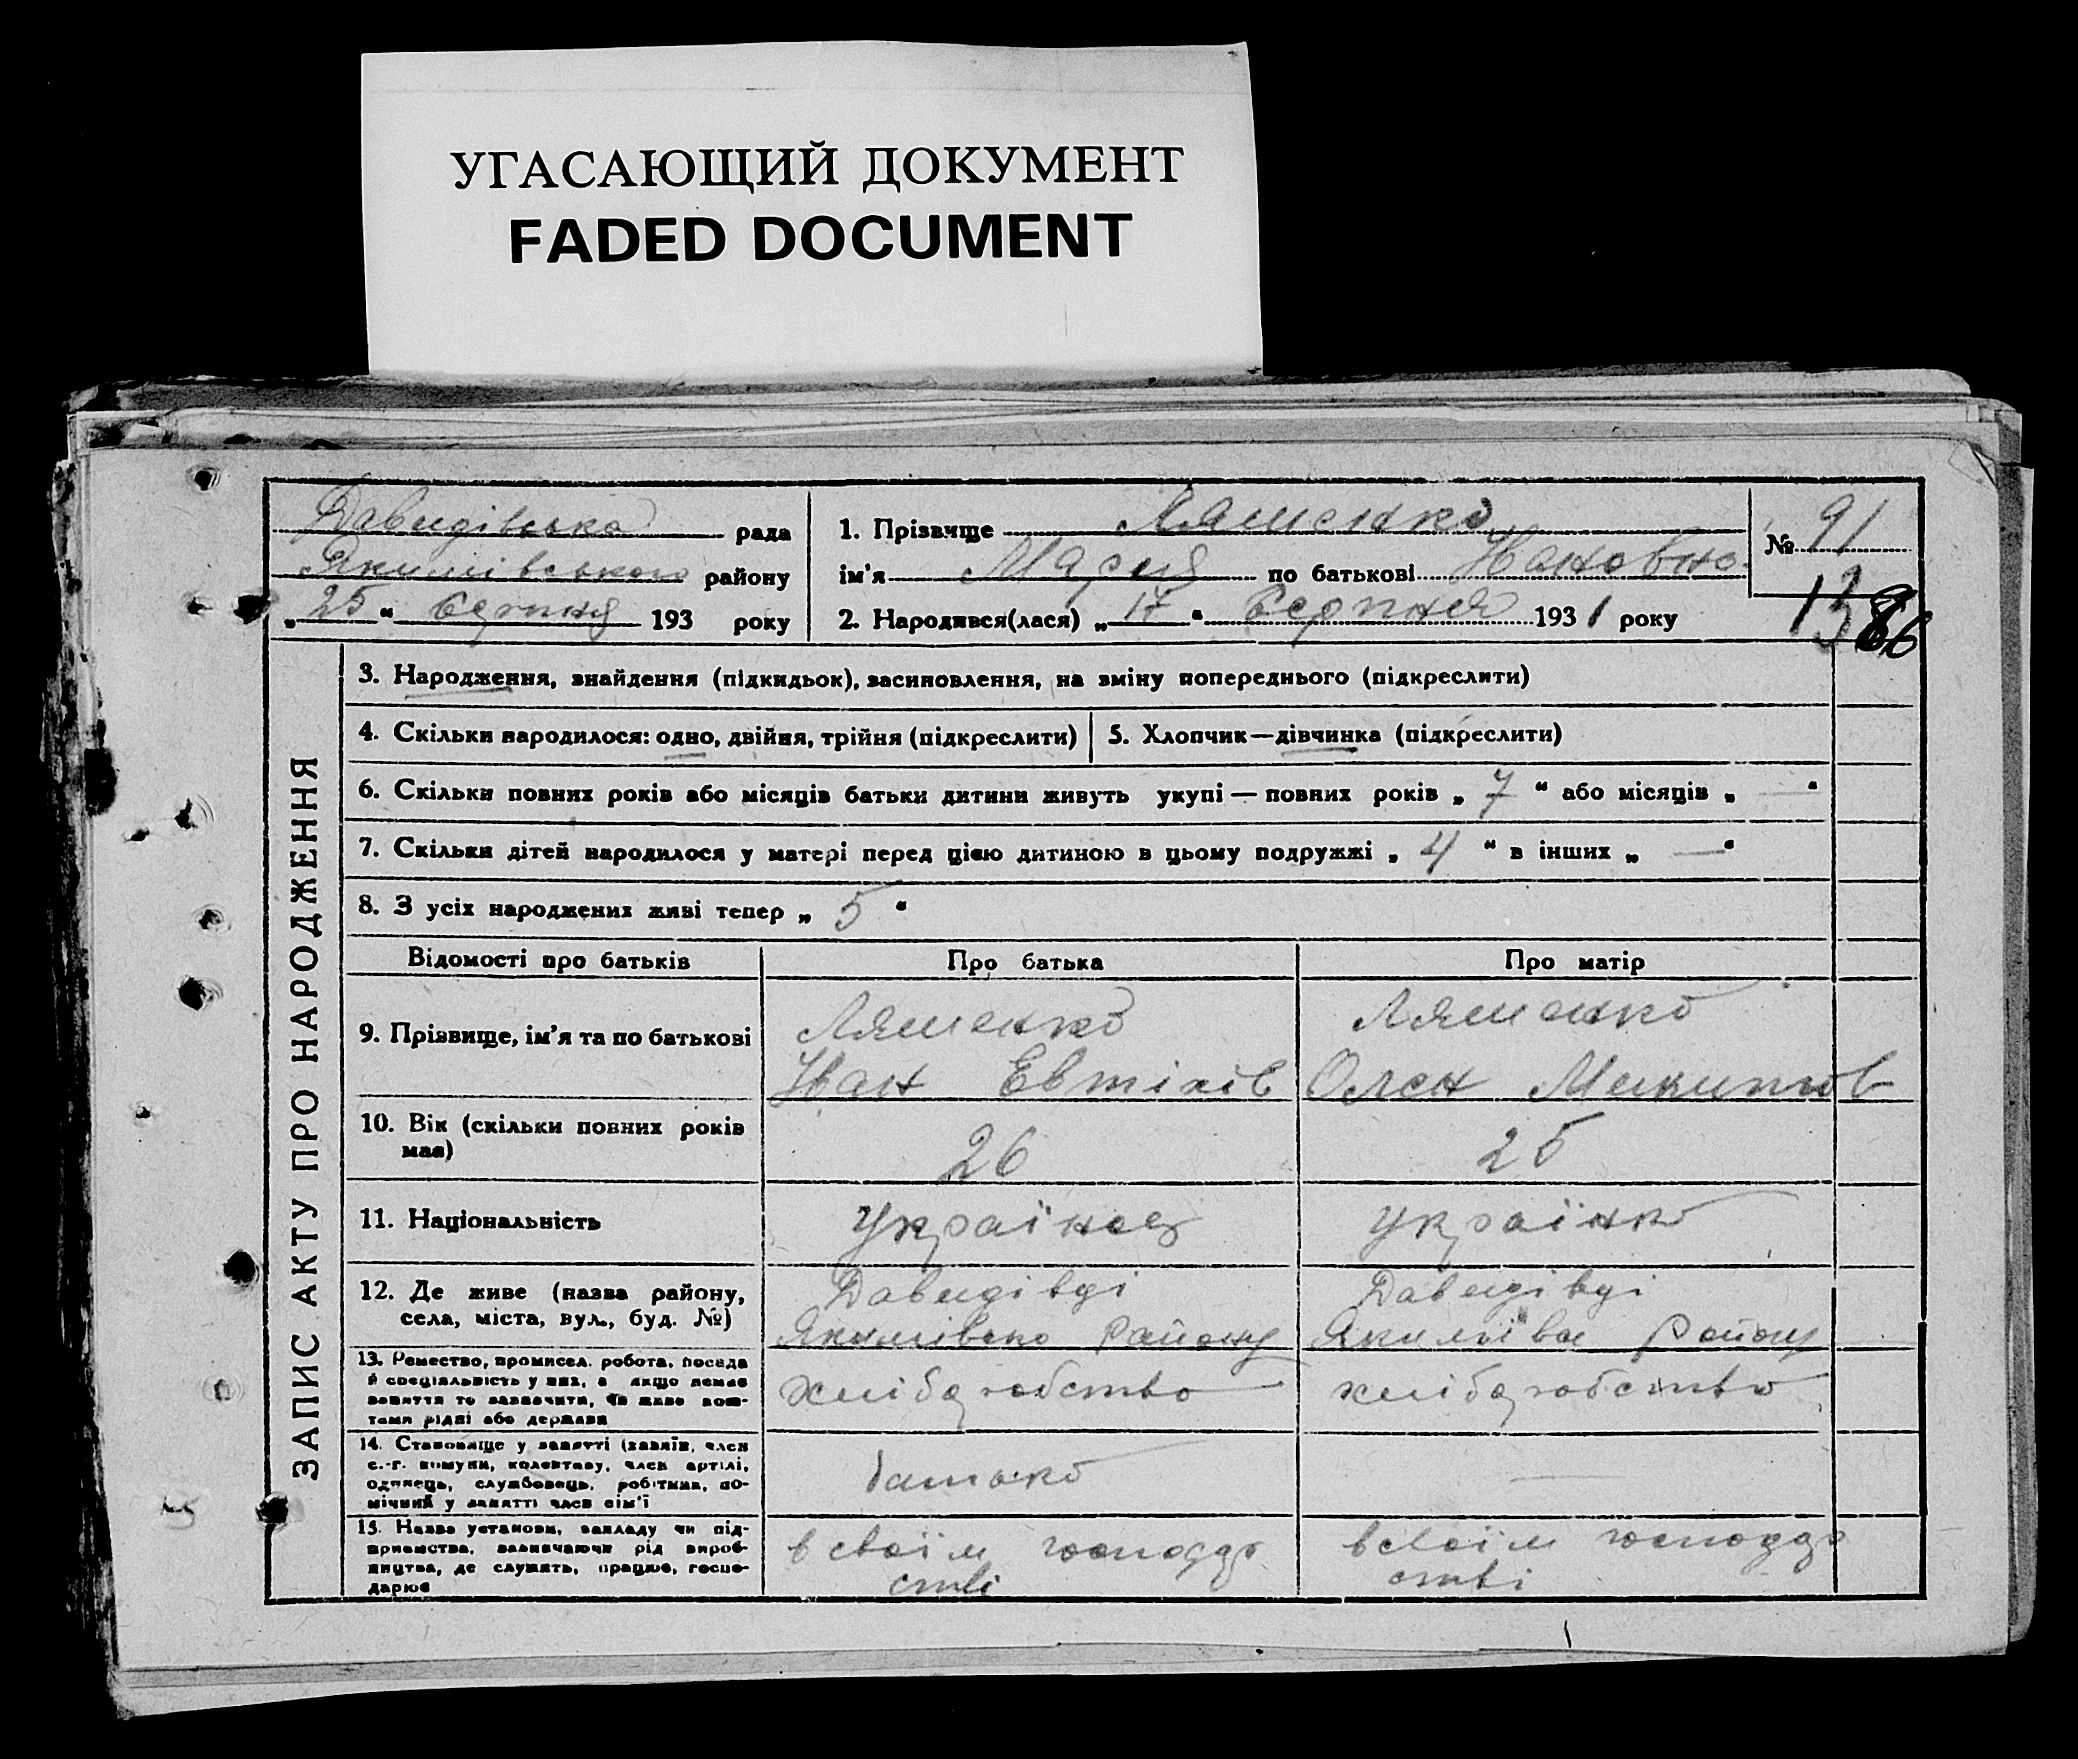 УГАСАЮЩИЙ ДОКУМЕНТ
FADED DOCUMENT
Давидівська рада
Якимівського району
„ 25 “ серпня 193 року
1. Прізвище Ляшенко
ім'я Мария по батькові Ивановна
2. Народився(лася) „ 17 “ Серпня 1931 року
№ 91
ЗАПИС АКТУ ПРО НАРОДЖЕННЯ
3. Народження, знайдення (підкидьок), засиновлення, на зміну попереднього (підкреслити)
4. Скільки народилося: одно, двійня, трійня (підкреслити)
5. Хлопчик — дівчинка (підкреслити)
6. Скільки повних років або місяців батьки дитини живуть укупі — повних років „ 7 “ або місяців „ — “
7. Скільки дітей народилося у матері перед цією дитиною в цьому подружжі „ 4 “ в інших „ — “
8. З усіх народжених живі тепер „ 5 “
Відомості про батьків
Про батька
Про матір
9. Прізвище, ім'я та по батькові
Ляшенко
Иван Евтіхів
Ляшенко
Олен Микитов
10. Вік (скільки повних років
має)
26
25
11. Національність
Українец
Українка
12. Де живе (назва району,
села, міста, вул., буд. №)
Давидівці
Якимівсько Району
Давидівці
Району
13. Ремество, промисел, робота, посада
й спеціяльність у них, а якщо немає
заняття то зазначити, чи живе кош-
тами рідні або держави
хлібдробство
хлібдробство
14. Становище у занятті (хазяїн, член
с.-г. комуни, колективу, член артілі,
одинець, службовець, робітник, по-
мічний у занятті член сім'ї
батько
—
15. Назва установи, закладу чи під-
приємства, зазначаючи рід вироб-
ництва, де служить, працює, госпо-
дарює
в своїм господар
стві
в своїм господар
стві